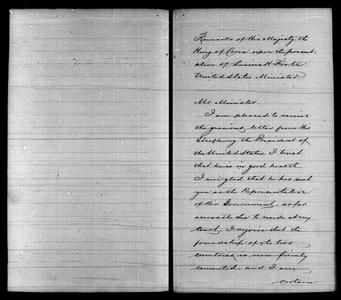 Remarks of His Majesty the
King of Corea upon the present-
ation of Lucius H. Foote
United States Minister.
Mr. Minister
I am pleased to receive
the gracious letter from His
Excellency the President of
the United States. I trust
that he is in good health.
I am glad that he has sent
you as the Representative
of his Government, so far
across the Sea to reside at my
Court. I rejoice that the
friendship of the two
countries is now firmly
cemented, and I am
certain